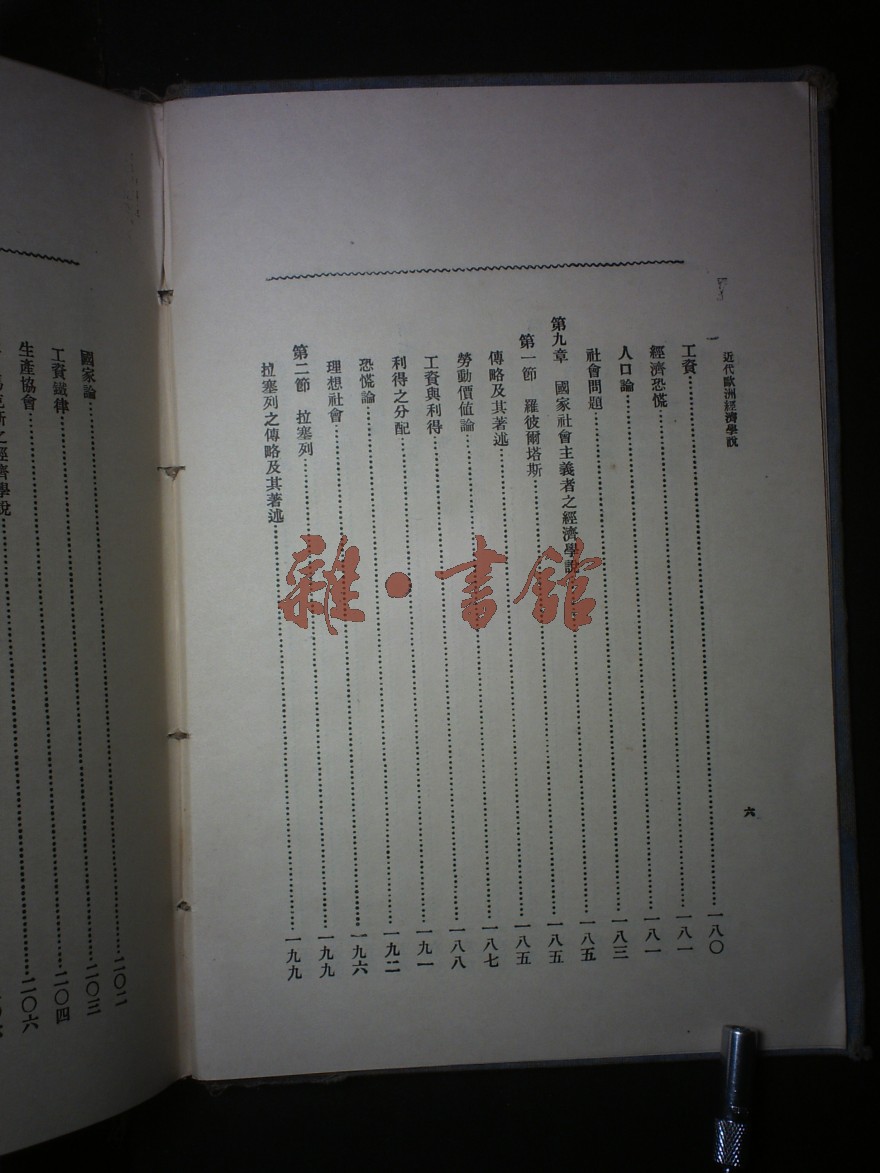 近代歐洲經濟學說
六
工資……一八〇
經濟恐慌……一八一
人口論……一八一
社會問題……一八三
第九章 國家社會主義者之經濟學說……一八五
第一節 羅彼爾塔斯……一八五
傳略及其著述……一八五
勞動價值論……一八七
工資與利得……一八八
利得之分配……一九一
恐慌論……一九二
理想社會……一九六
第二節 拉塞列……一九九
拉塞列之傳略及其著述……一九九
國家論……二〇二
工資鐵律……二〇三
生產協會……二〇四
克斯之經濟學說……二〇六
雜·書館